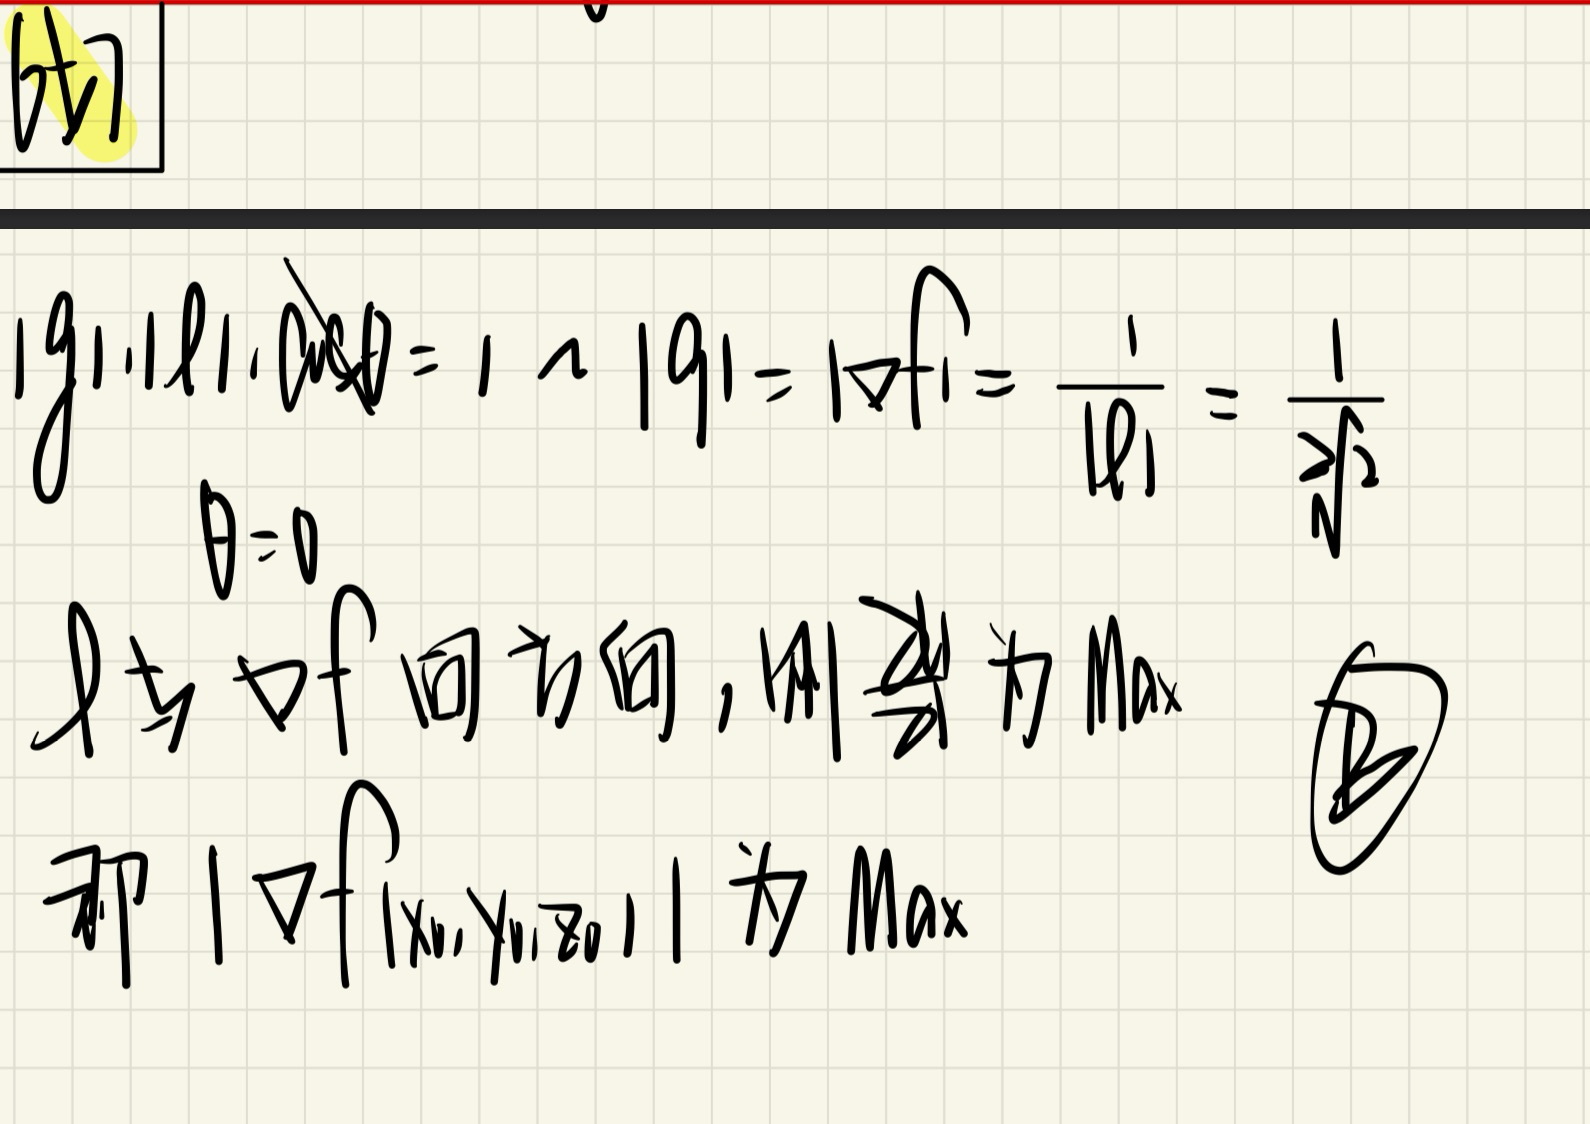 |g|·|l|·cosθ = 1 ~ |g| = |∇f| = 1/|l| = 1/(2√2)
θ=0
l与∇f同方向, 则 为 Max
即 |∇f(x₀, y₀, z₀)| 为 Max